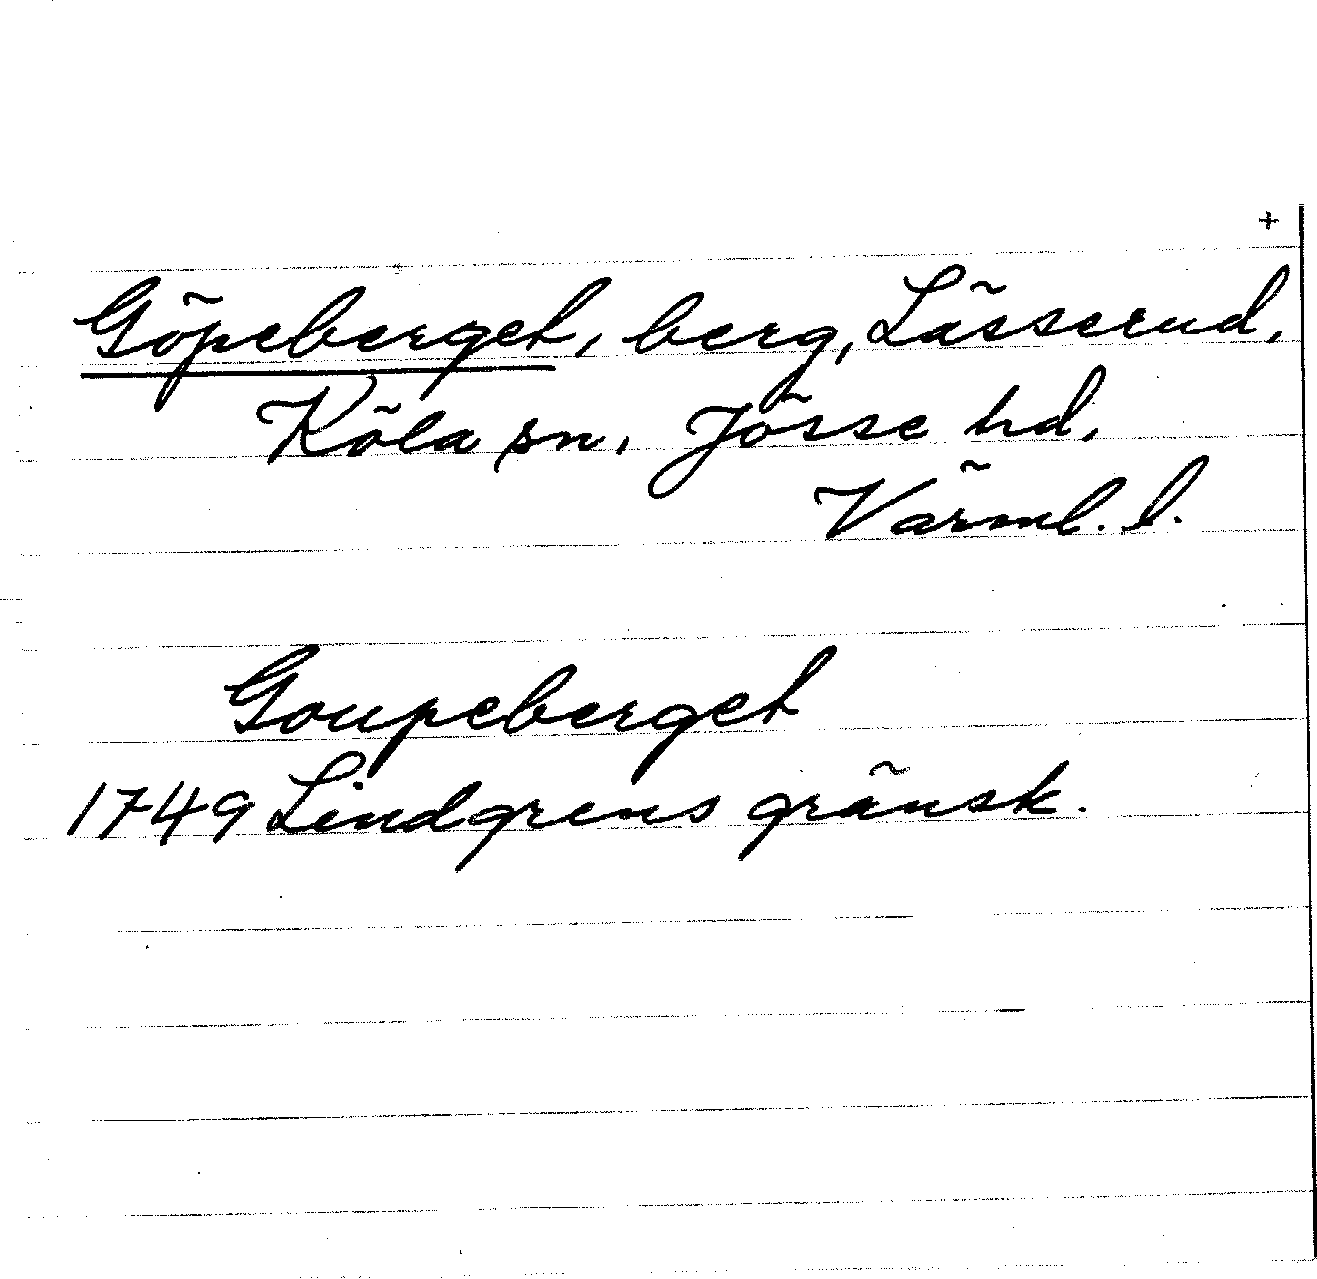 +
Göpeberget, berg, Lässerud,
Köla sn, Jösse hd,
Värml. l.
Goupeberget
1749 Lindgrens gränsk.